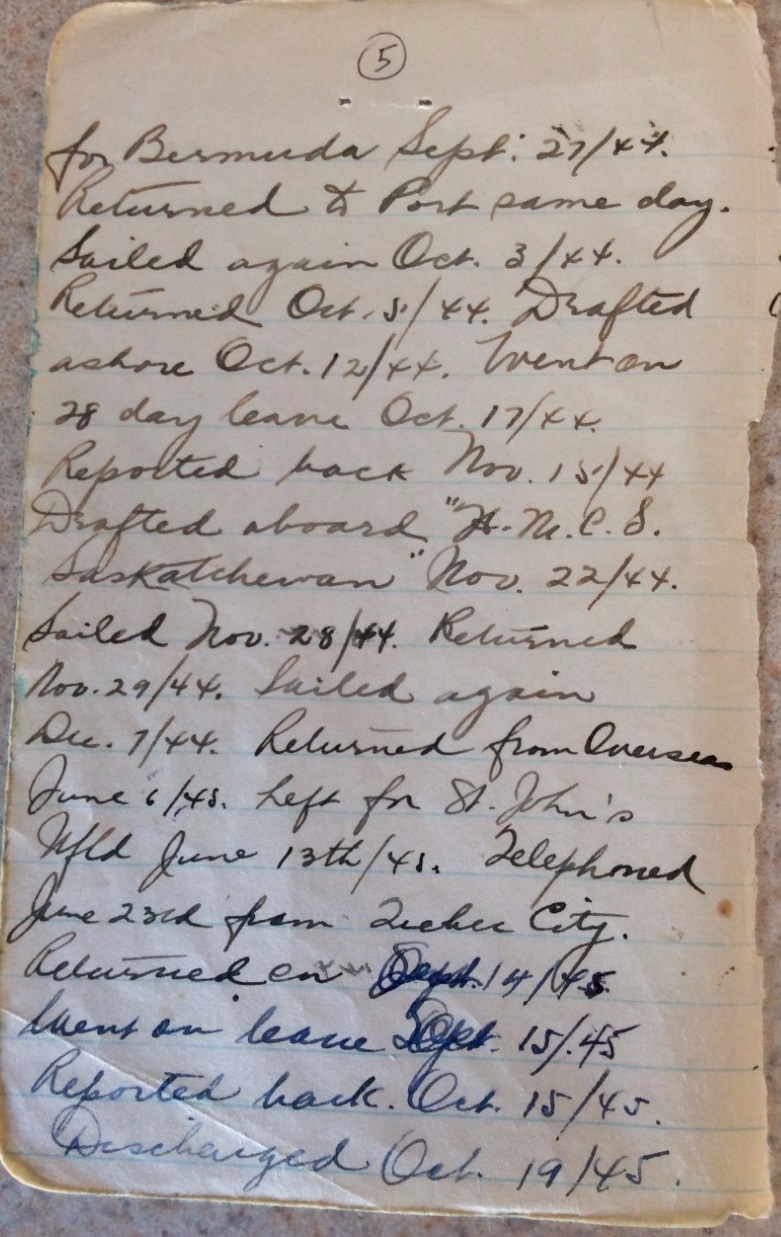 5
for Bermuda Sept. 27/44.
Returned to Port same day.
Sailed again Oct. 3/44.
Returned Oct. 5/44. Drafted
ashore Oct. 12/44. Went on
28 day leave Oct. 17/44.
Reported back Nov. 15/44
Drafted aboard "H.M.C.S.
Saskatchewan" Nov. 22/44.
Sailed Nov. 28/44. Returned
Nov. 29/44. Sailed again
Dec. 7/44. Returned from Overseas
June 6/45. Left for St. John's
Nfld June 13th/45. Telephoned
June 23rd from Quebec City.
Returned on Sept. 14/45
Went on leave Sept. 15/.45
Reported back. Oct. 15/45.
Discharged Oct. 19/45.